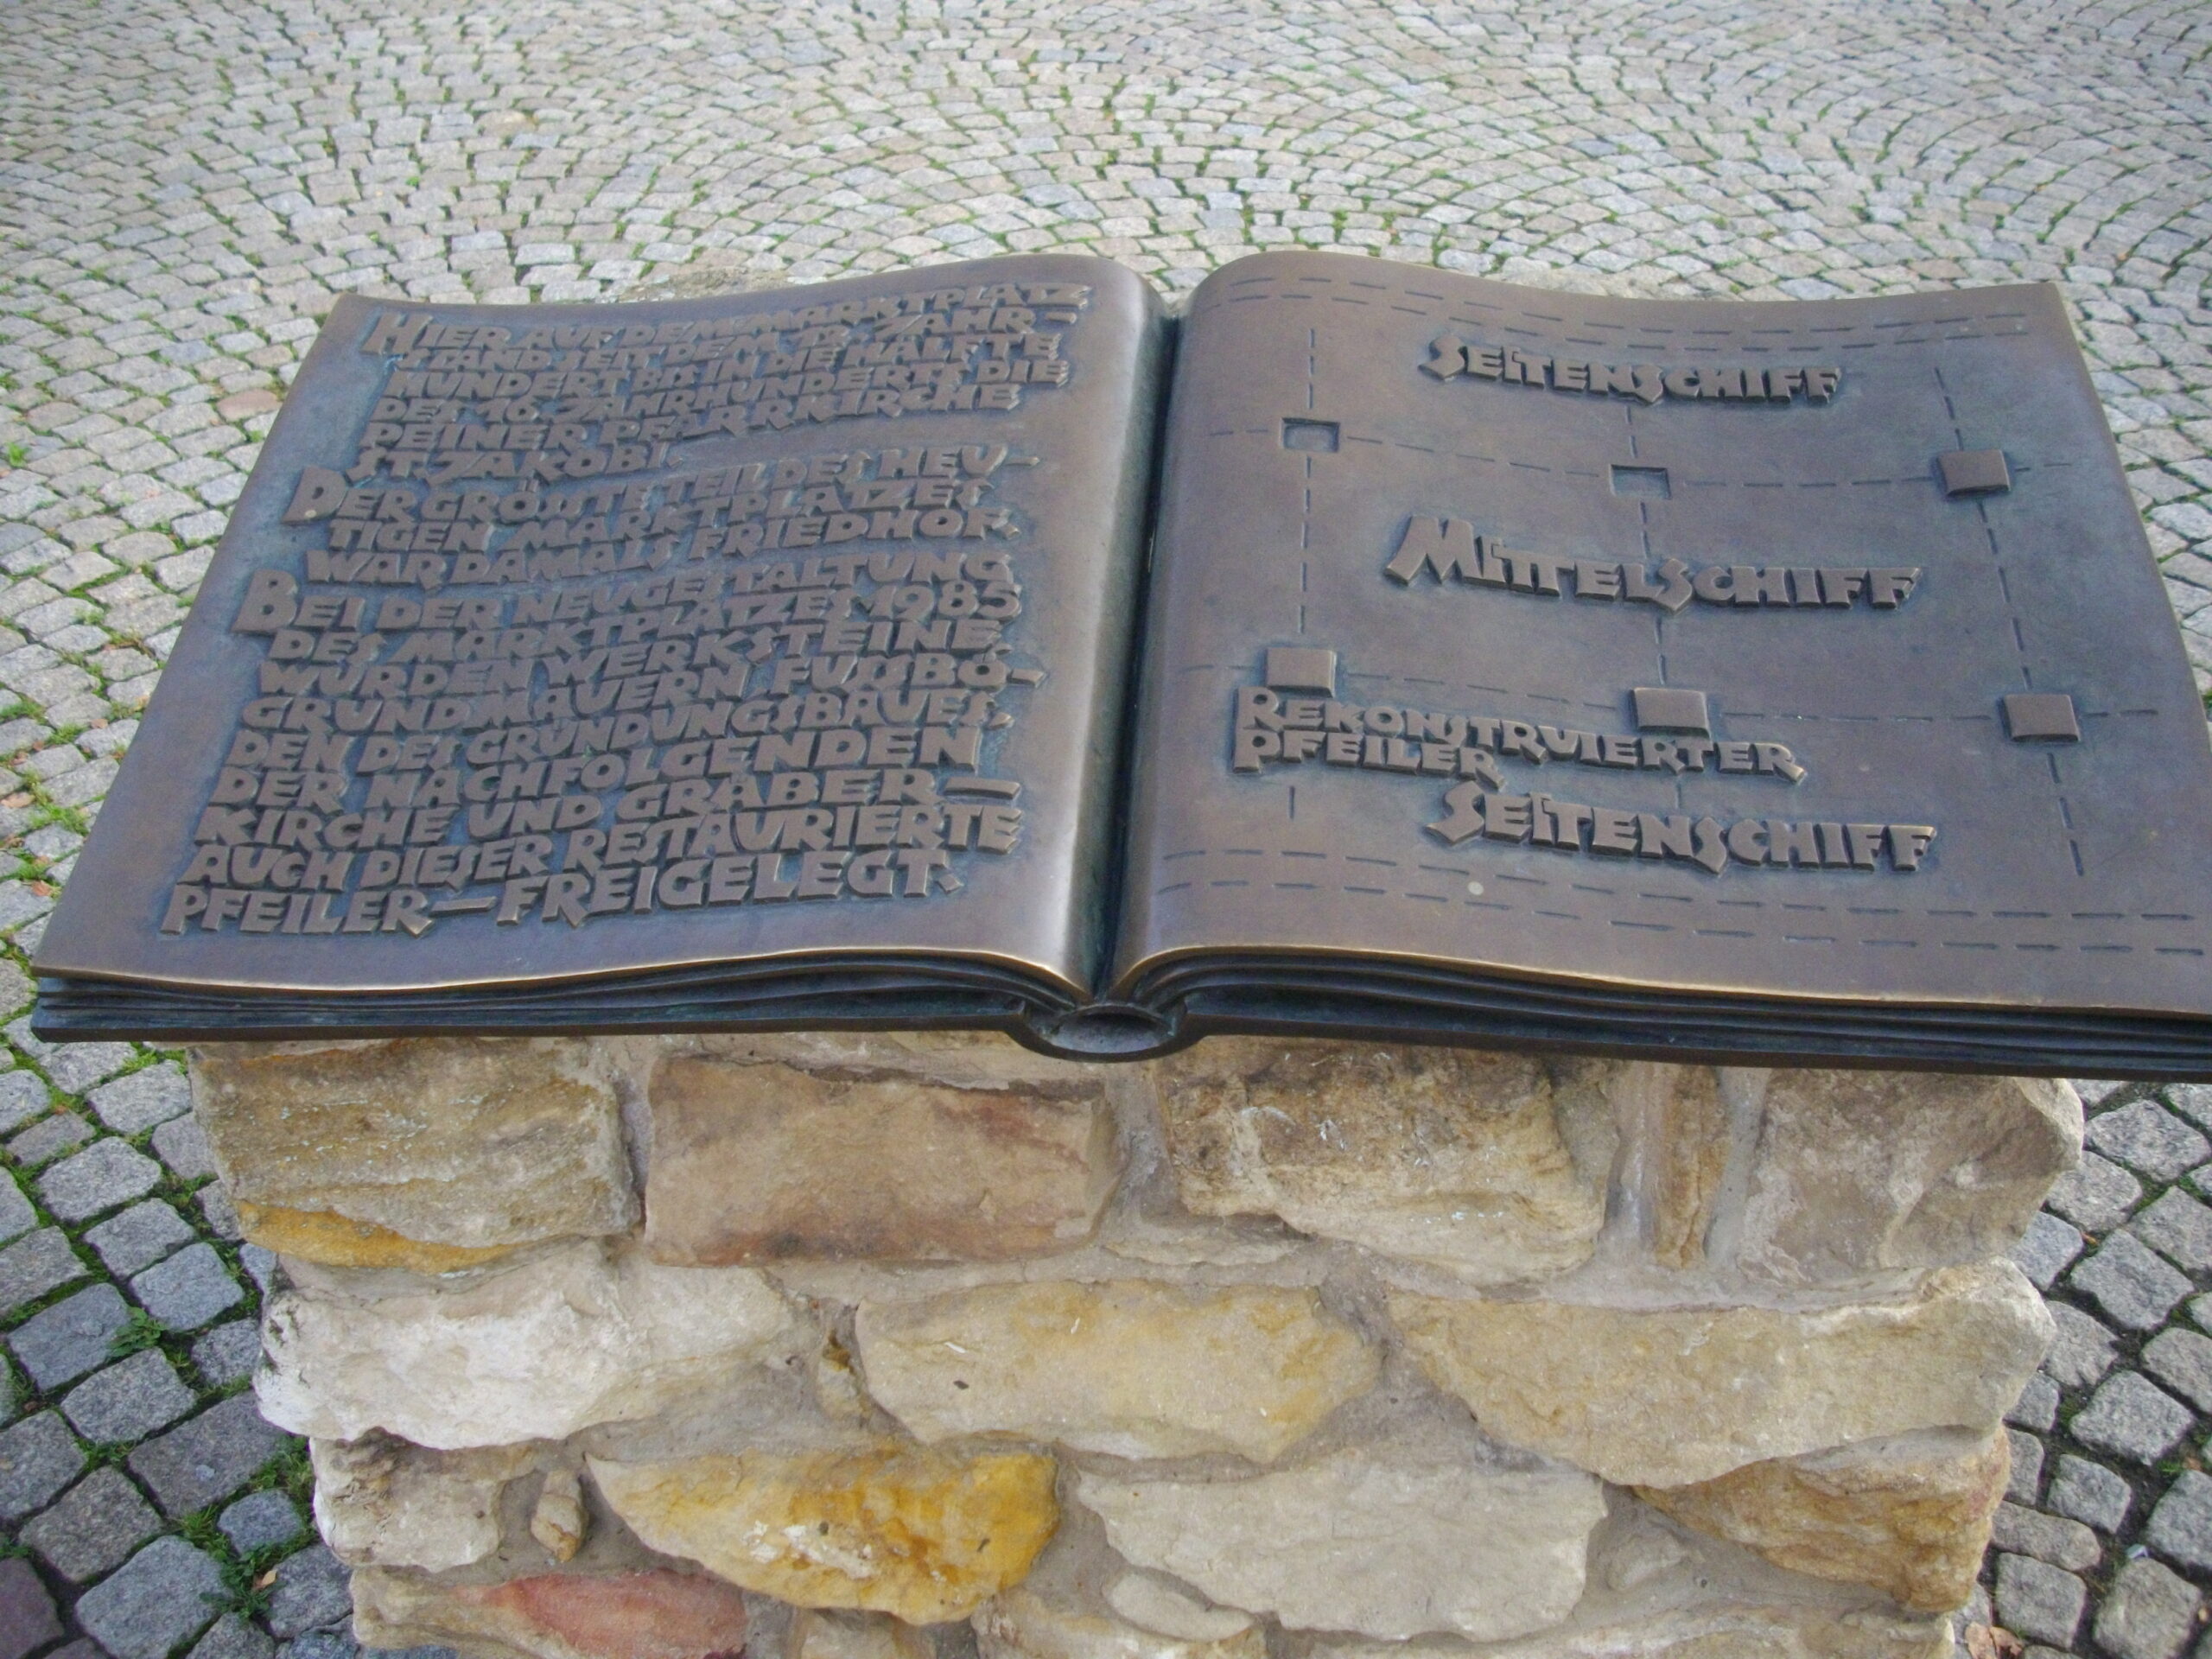 HIER AUF DEM MARKTPLATZ
STAND SEIT DEM 13. JAHR-
HUNDERT BIS IN DIE HÄLFTE
DES 16. JAHRHUNDERTS DIE
PEINER PFARRKIRCHE
ST. JAKOBI.
DER GRÖSSTE TEIL DES HEU-
TIGEN MARKTPLATZES
WAR DAMALS FRIEDHOF.
BEI DER NEUGESTALTUNG
DES MARKTPLATZES 1985
WURDEN WERKSTEINE,
GRUNDMAUERN, FUSSBÖ-
DEN DES GRÜNDUNGSBAUES,
DER NACHFOLGENDEN
KIRCHE UND GRÄBER —
AUCH DIESER RESTAURIERTE
PFEILER — FREIGELEGT.
SEITENSCHIFF
MITTELSCHIFF
REKONSTRUIERTER
PFEILER
SEITENSCHIFF